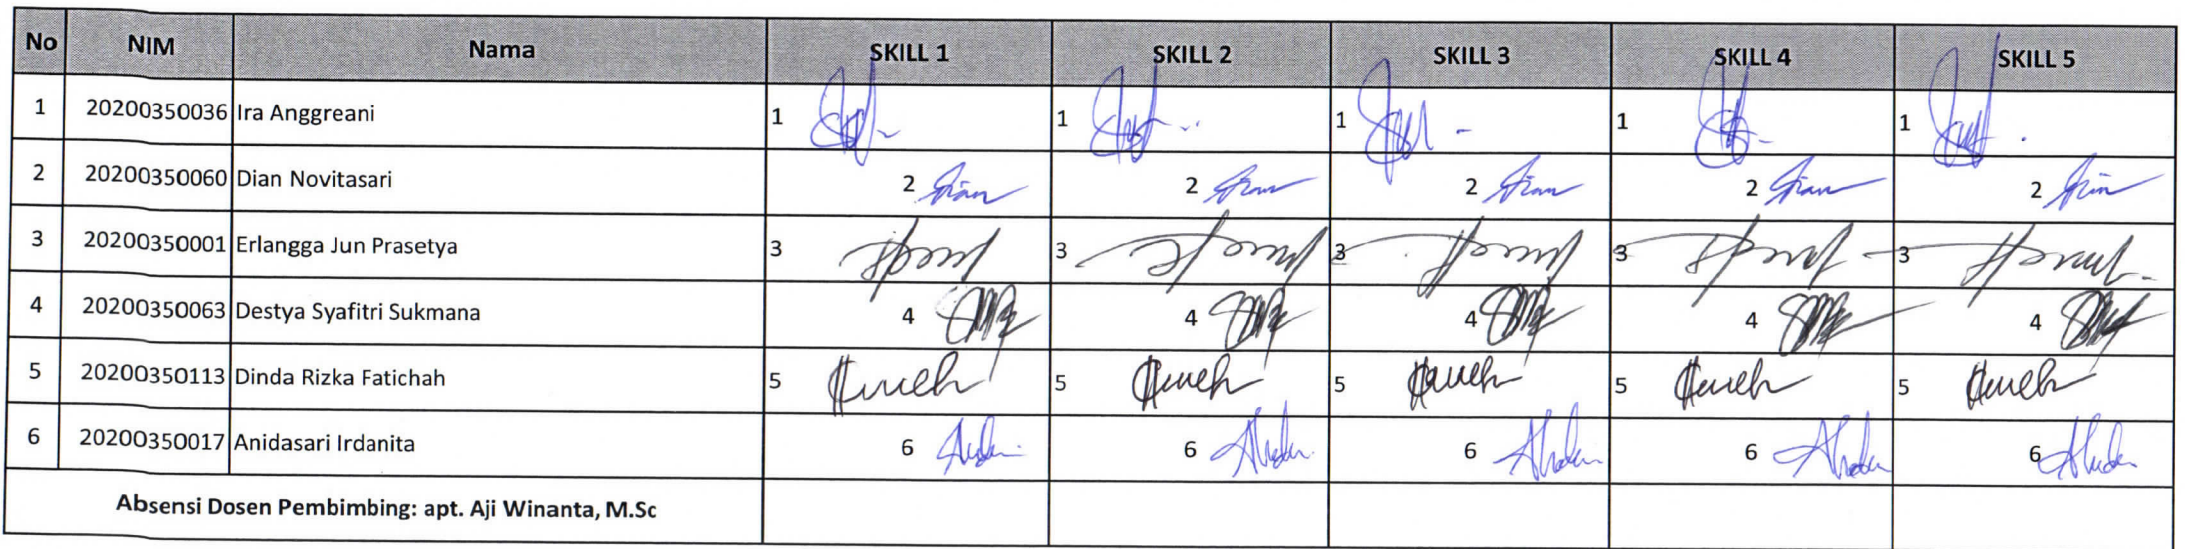 No NIM Nama SKILL 1 SKILL 2 SKILL 3 SKILL 4 SKILL 5
1 20200350036 Ira Anggreani 1 1 1 1 1
2 20200350060 Dian Novitasari 2 2 2 2 2
3 20200350001 Erlangga Jun Prasetya 3 3 3 3 3
4 20200350063 Destya Syafitri Sukmana 4 4 4 4 4
5 20200350113 Dinda Rizka Fatichah 5 5 5 5 5
6 20200350017 Anidasari Irdanita 6 6 6 6 6
Absensi Dosen Pembimbing: apt. Aji Winanta, M.Sc